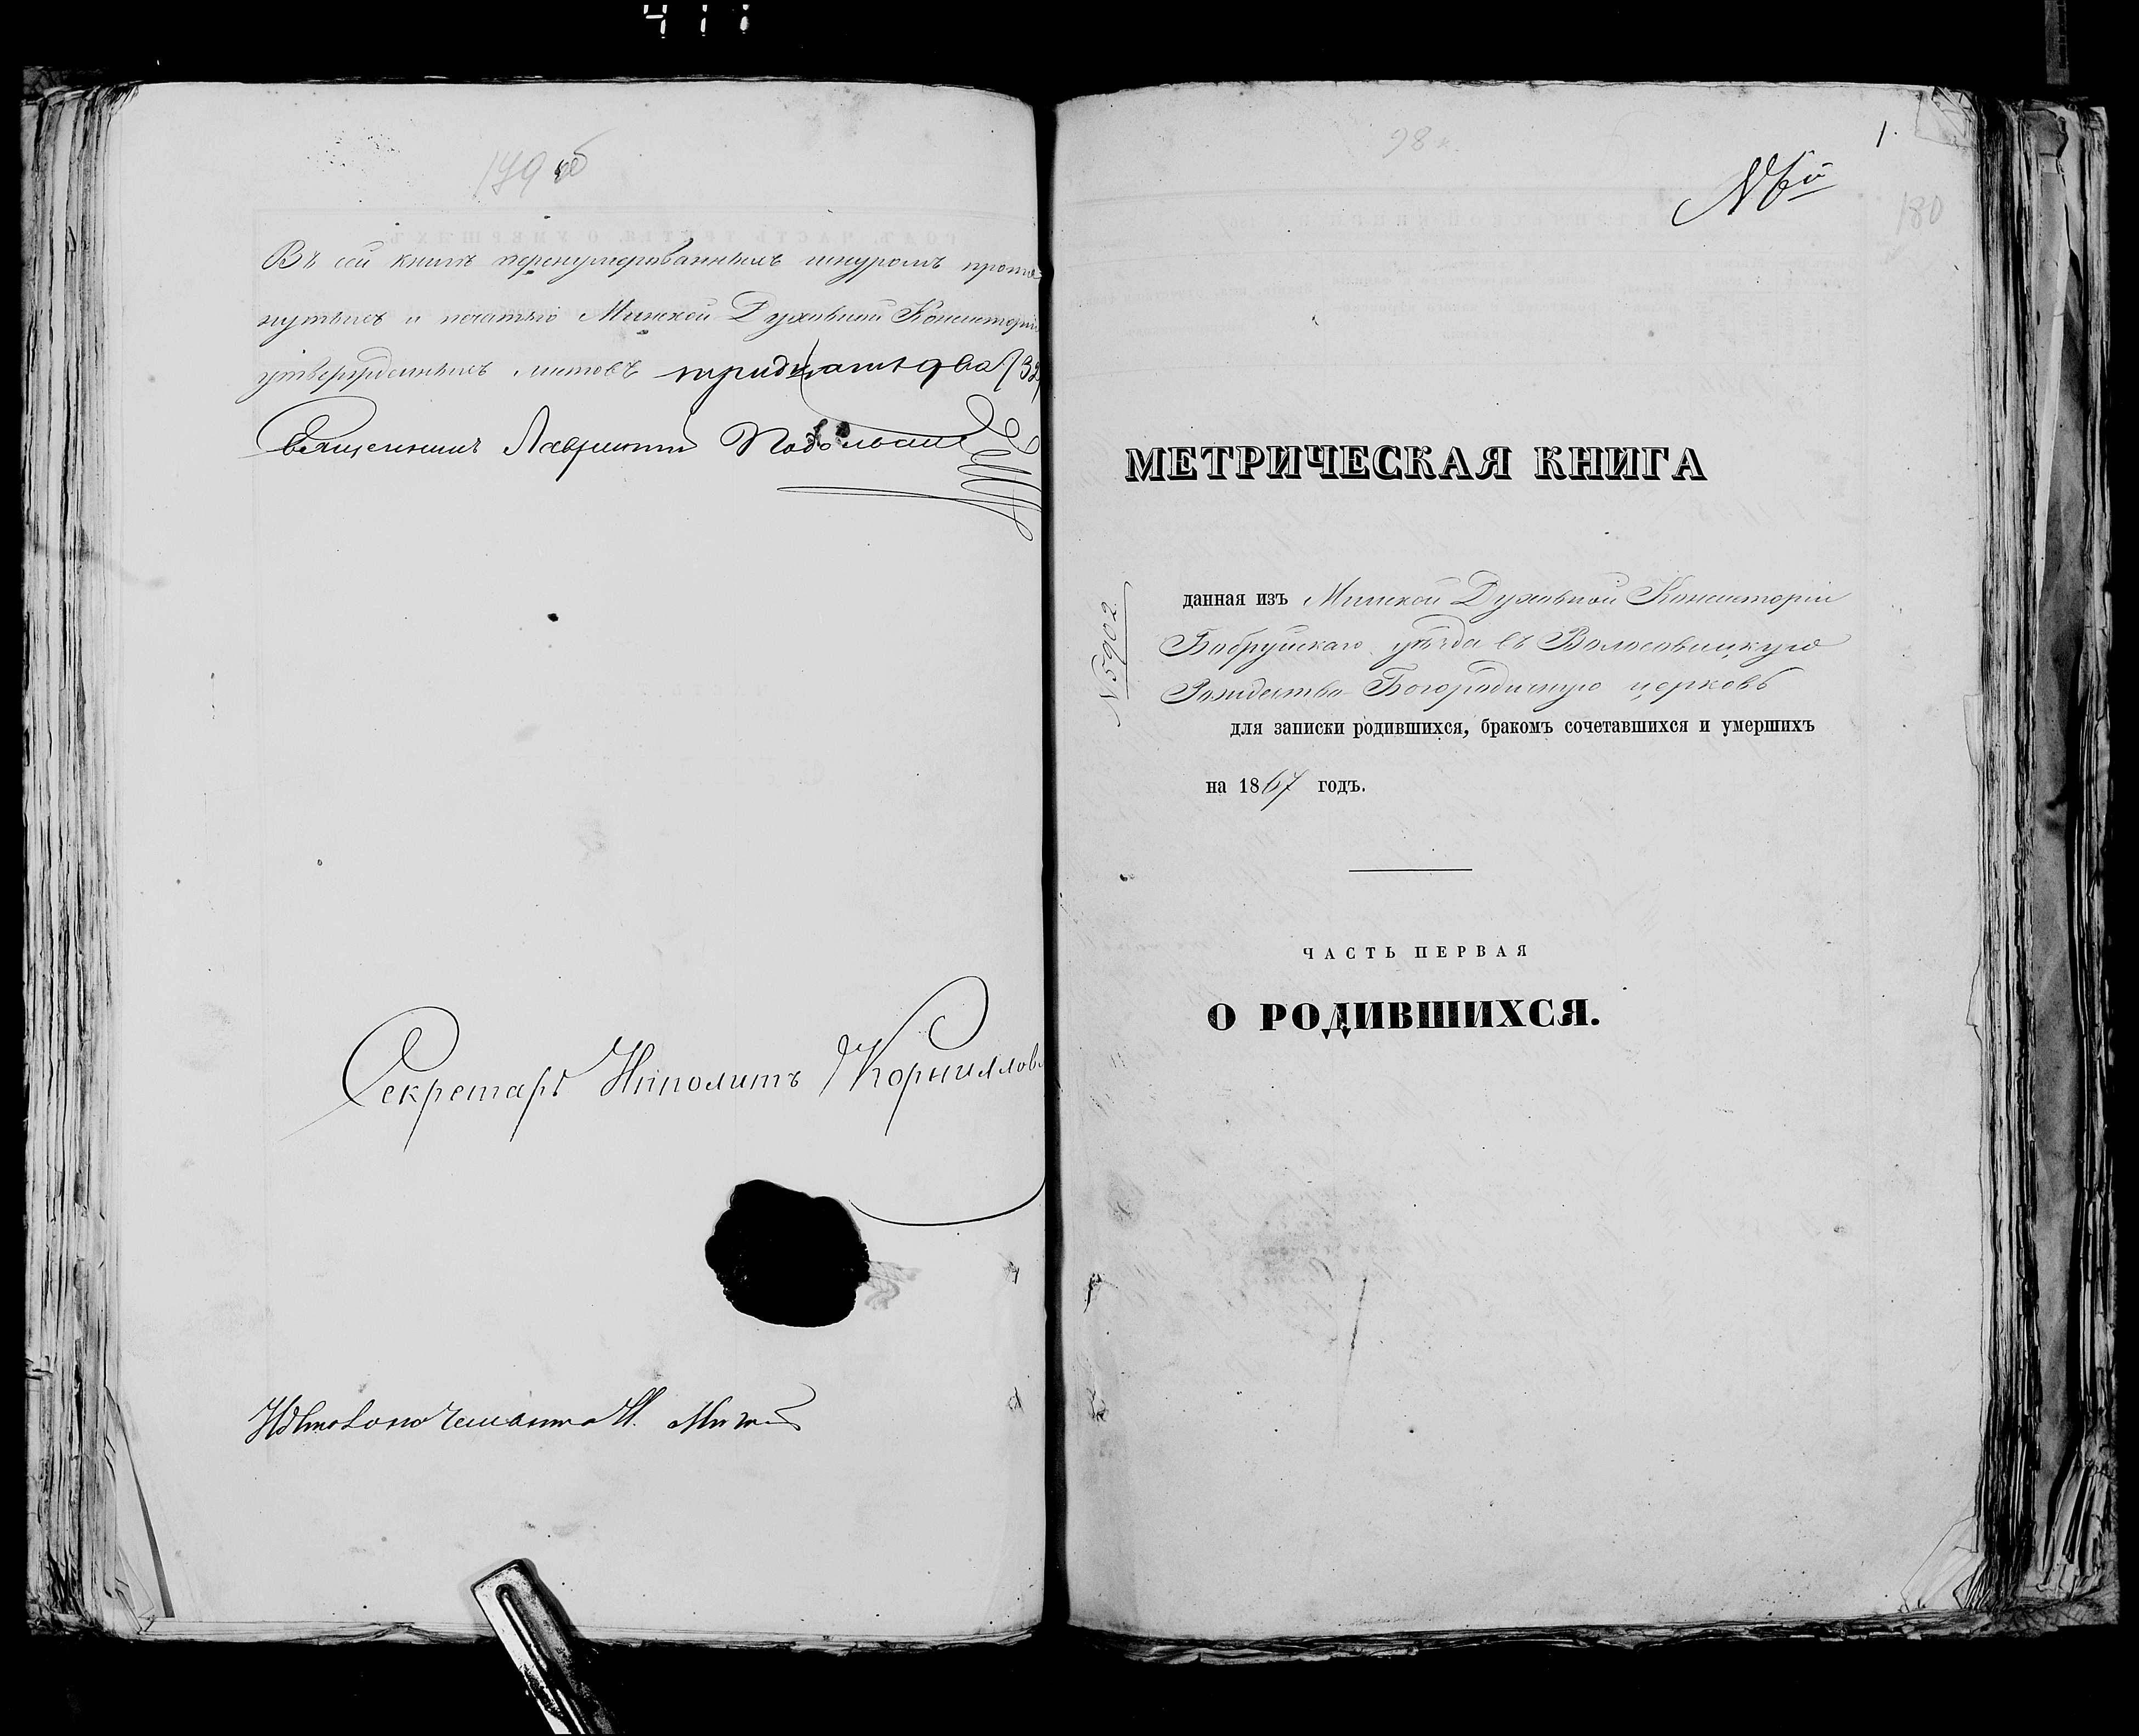 411
179 об
Въ сей книгѣ перенумерованныхъ шнуромъ протя-
нутыхъ и печатью Минской Духовной Консисторіи
утвержденныхъ листовъ тридцать два (32)
Священникъ Лаврентій
Секретарь Иполитъ Корниллов
1.
98 к.
№ 6й
180
МЕТРИЧЕСКАЯ КНИГА
№ 5902
данная изъ Минской Духовной Консисторіи
Бобруйскаго уѣзда въ Волосовицкую
Рождество-Богородичную церковь
для записки родившихся, бракомъ сочетавшихся и умершихъ
на 1867 годъ.
ЧАСТЬ ПЕРВАЯ
О РОДИВШИХСЯ.